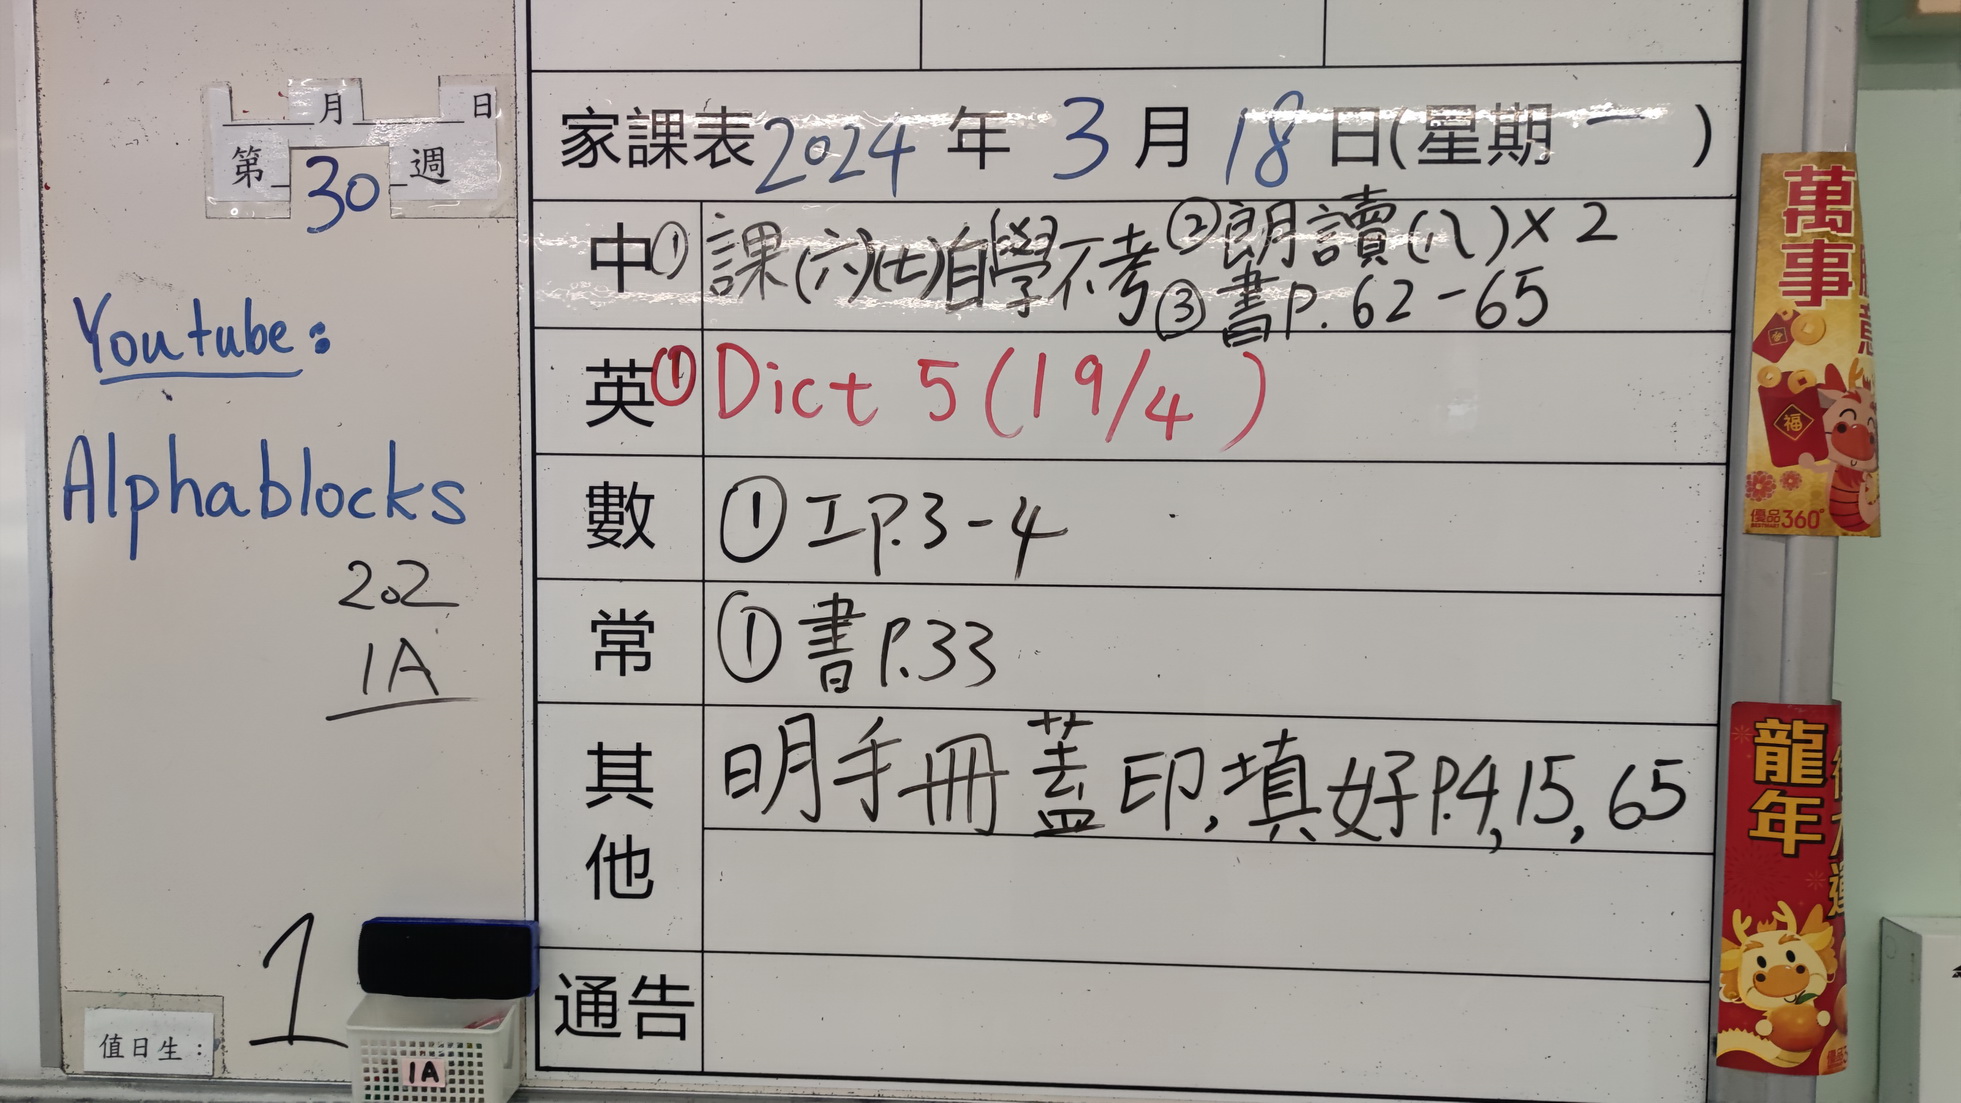 月 日
第 30 週
Youtube:
Alphablocks
202
1A
1
值日生:
1A
家課表 2024 年 3 月 18 日(星期 一 )
中 ① 課(六)(七)自學不考 ② 朗讀(八)×2
③ 書P.62-65
英 ① Dict 5 (19/4)
數 ① 工P.3-4
常 ① 書P.33
其他 明手冊蓋印,填好P.4,15,65
通告
萬事
優品360°
福
龍年